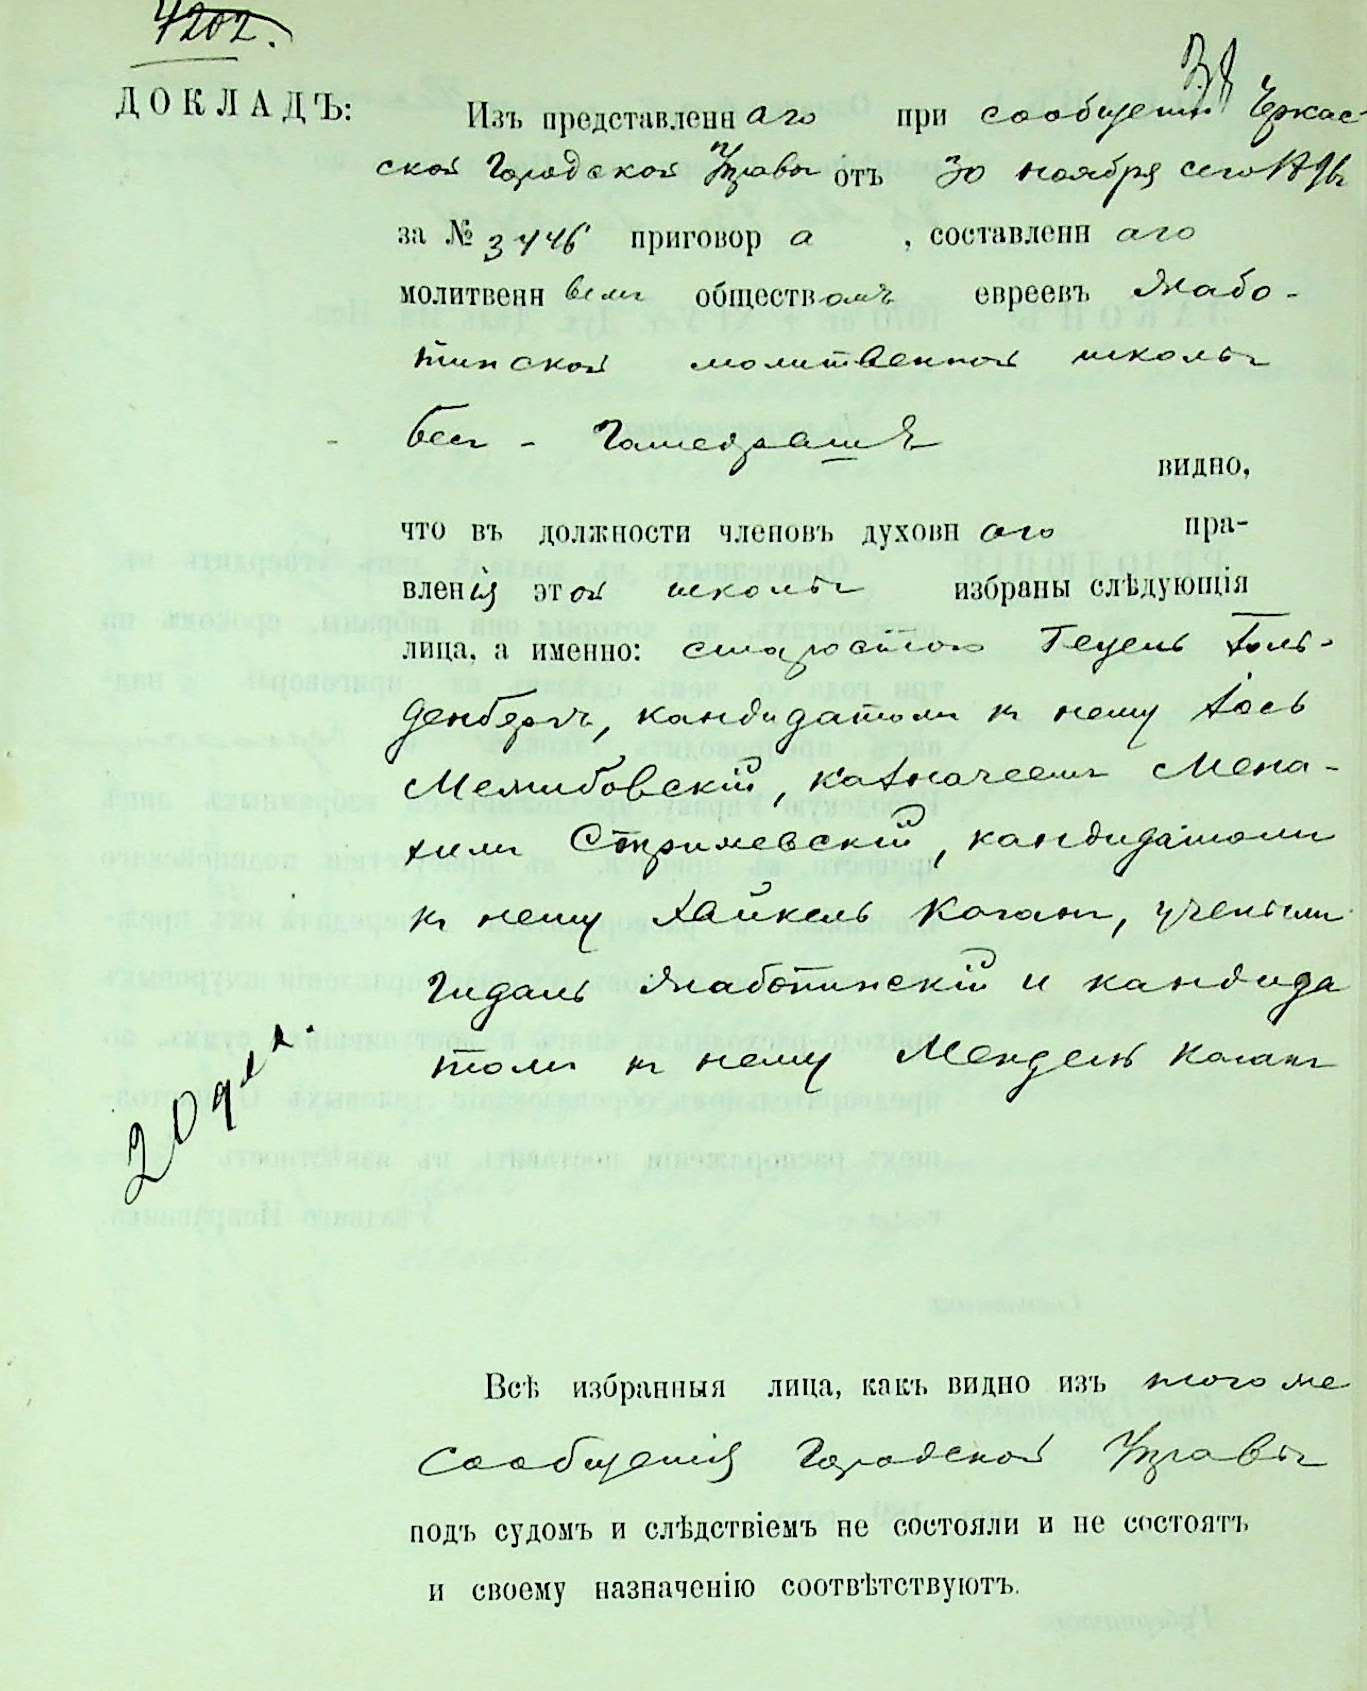 4202.
38
ДОКЛАДЪ: Изъ представленнаго при сообщеніи Черкас-
ской Городской Управы отъ 30 ноября сего
за № 3446 приговора, составленнаго
молитвеннымъ обществомъ евреевъ Жабо-
тинской молитвенной школы
Бес - Гамедрашъ
видно,
что въ должности членовъ духовнаго пра-
вленія этой школы избраны слѣдующія
лица, а именно: старостою Гецель Голь-
денбергъ, кандидатомъ къ нему Іось
казначеемъ Мена-
химъ кандидатомъ
къ нему Хайкель Коганъ, ученымъ
Гидаль Жаботинскій и кандида
томъ къ нему Мендель Коганъ
Всѣ избранныя лица, какъ видно изъ того же
сообщенія Городской Управы
подъ судомъ и слѣдствіемъ не состояли и не состоятъ
и своему назначенію соотвѣтствуютъ.